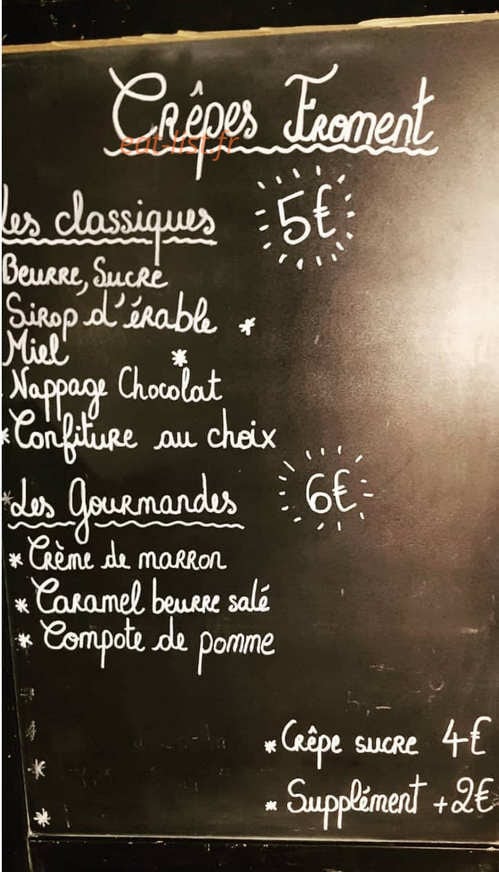 Crêpes Froment
eat-list.fr
Les classiques 5€
Beurre, Sucre
Sirop d'érable *
Miel *
Nappage Chocolat
* Confiture au choix
* Les Gourmandes 6€
* Crème de marron
* Caramel beurre salé
* Compote de pomme
* Crêpe sucre 4€
* Supplément +2€